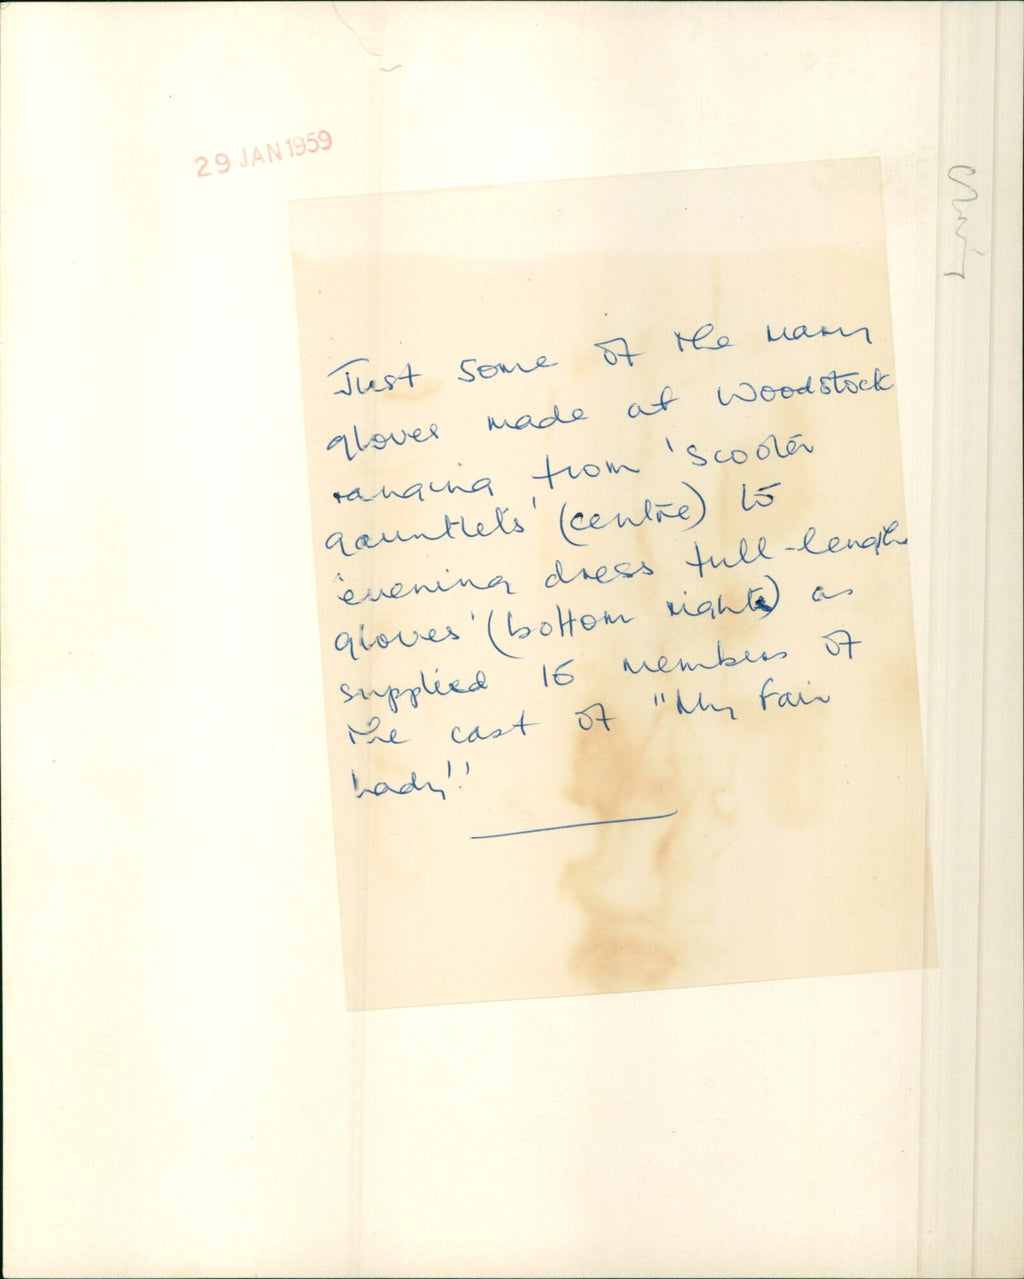 29 JAN 1959
Just some of the many
gloves made at Woodstock
ranging from 'scooter
gauntlets' (centre) to
'evening dress full-length
gloves' (bottom right) as
supplied to members of
the cast of "My Fair
Lady".